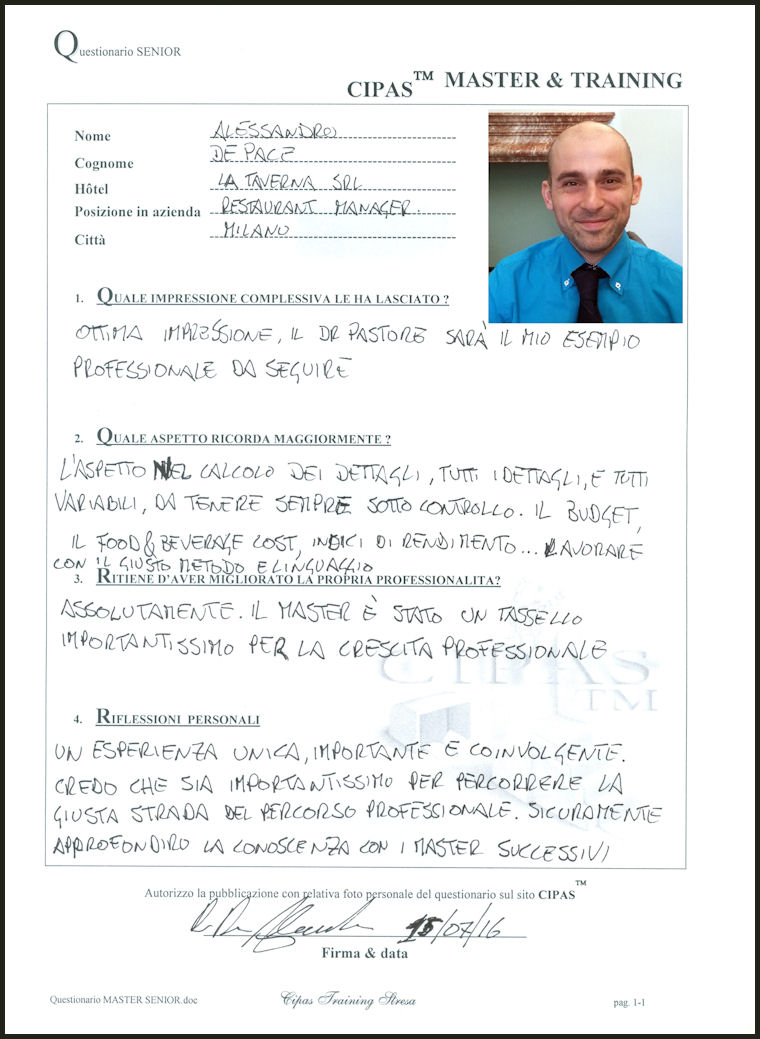 Questionario SENIOR
CIPAS™ MASTER & TRAINING
Nome ALESSANDRO
Cognome DE PACE
Hôtel LA TAVERNA SRL
Posizione in azienda RESTAURANT MANAGER.
Città MILANO
1. QUALE IMPRESSIONE COMPLESSIVA LE HA LASCIATO ?
OTTIMA IMPRESSIONE, IL DR PASTORE SARÀ IL MIO ESEMPIO
PROFESSIONALE DA SEGUIRE
2. QUALE ASPETTO RICORDA MAGGIORMENTE ?
L'ASPETTO NEL CALCOLO DEI DETTAGLI, TUTTI I DETTAGLI, E TUTTI
VARIABILI, DA TENERE SEMPRE SOTTO CONTROLLO. IL BUDGET,
IL FOOD & BEVERAGE COST, INDICI DI RENDIMENTO... LAVORARE
CON IL GIUSTO METODO E LINGUAGGIO
3. RITIENE D'AVER MIGLIORATO LA PROPRIA PROFESSIONALITA?
ASSOLUTAMENTE. IL MASTER È STATO UN TASSELLO
IMPORTANTISSIMO PER LA CRESCITA PROFESSIONALE
CIPAS
TM
4. RIFLESSIONI PERSONALI
UN ESPERIENZA UNICA, IMPORTANTE E COINVOLGENTE.
CREDO CHE SIA IMPORTANTISSIMO PER PERCORRERE LA
GIUSTA STRADA DEL PERCORSO PROFESSIONALE. SICURAMENTE
APPROFONDIRO LA CONOSCENZA CON I MASTER SUCCESSIVI
Autorizzo la pubblicazione con relativa foto personale del questionario sul sito CIPAS™
15/07/16
Firma & data
Questionario MASTER SENIOR.doc Cipas Training Stresa pag. 1-1